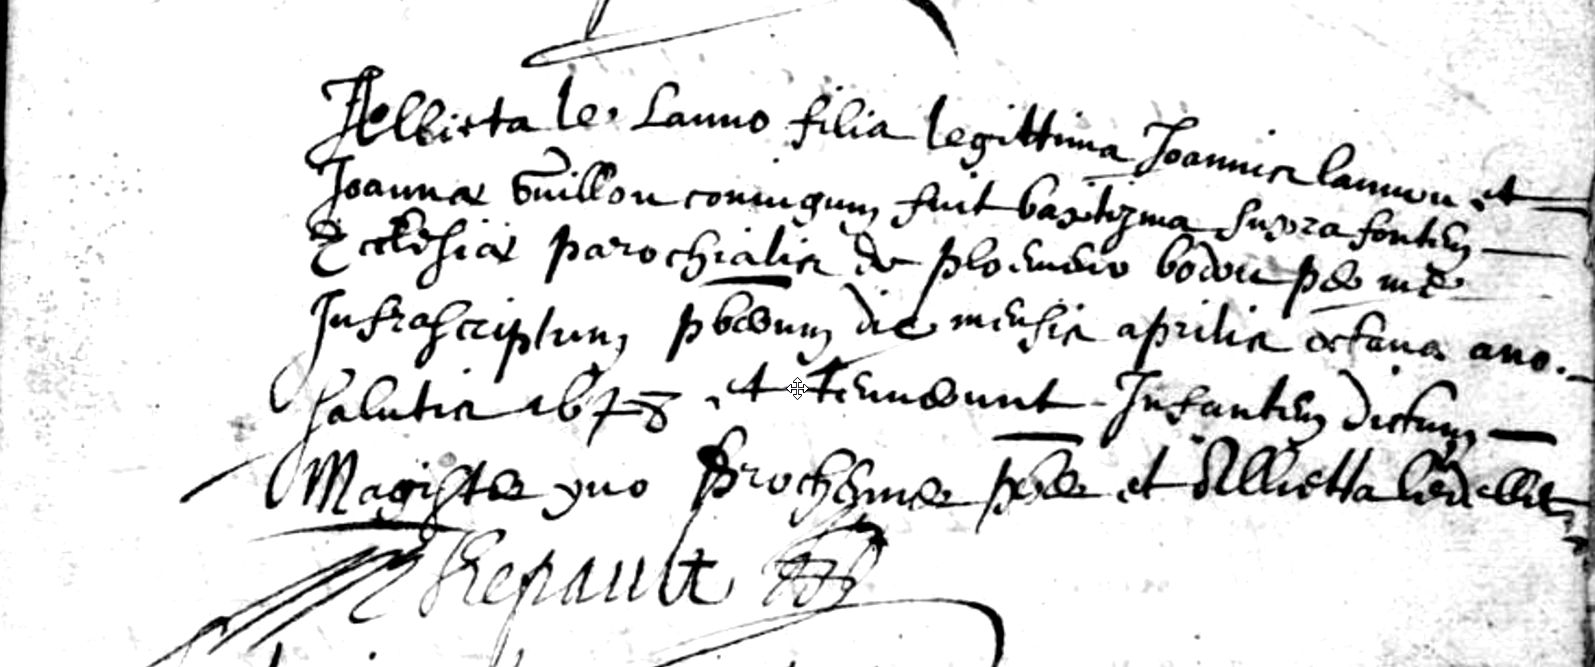 Allieta le Lanno filia legittima Joannis lannou et
Joannæ Guillou coniugum fuit baptizma supra fontem
Ecclesiæ parochialis de ploemeur bodou per me
Infrascriptum pbrum die mensis aprilis octaua ano.
Salutis 1678 et tenuerunt Infantem dictum
Magister yuo pber et Allietta